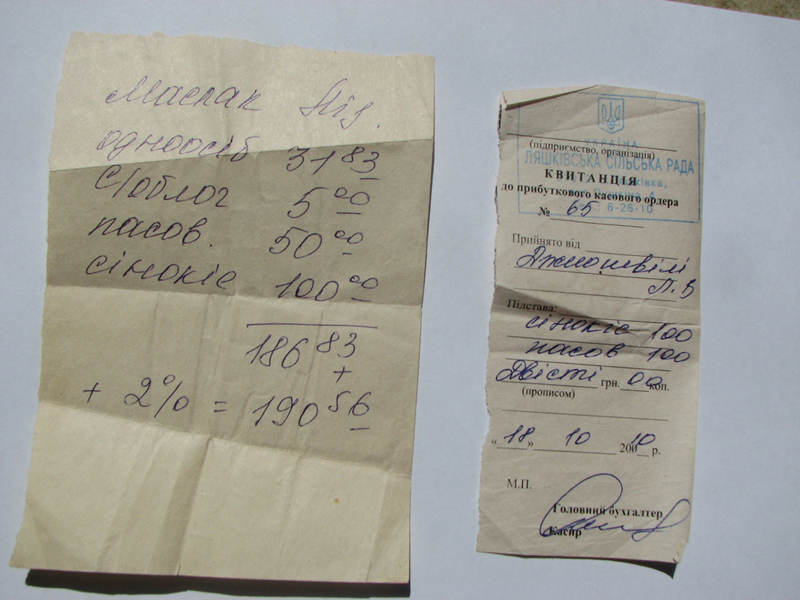 Маслак
одноосіб 31 83
с/облог 5 00
пасов. 50 00
сінокіс 100 00
186 83
+
+ 2% = 190 56
УКРАЇНА
(підприємство, організація)
ЛЯШКІВСЬКА СІЛЬСЬКА РАДА
КВИТАНЦІЯ
до прибуткового касового ордера
6-26-10
№ 65
Прийнято від
Джиошвілі
Л.В
Підстава:
сінокіс 100
пасов 100
Двісті грн. 00 коп.
(прописом)
«18» 10 2010 р.
М.П.
Головний бухгалтер
Касир